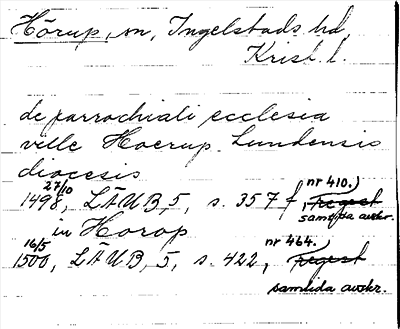 Hörup, sn, Ingelstads hd,
Krisl. l.
de parrochiali ecclesia
ville Hoerup. Lundensis
diocesis
27/10 1498, LÄUB, 5, s. 357 f, nr 410.) regest samtida avskr.
in Horop
16/5 1500, LÄUB, 5, s. 422, nr 464. regest
samtida avskr.